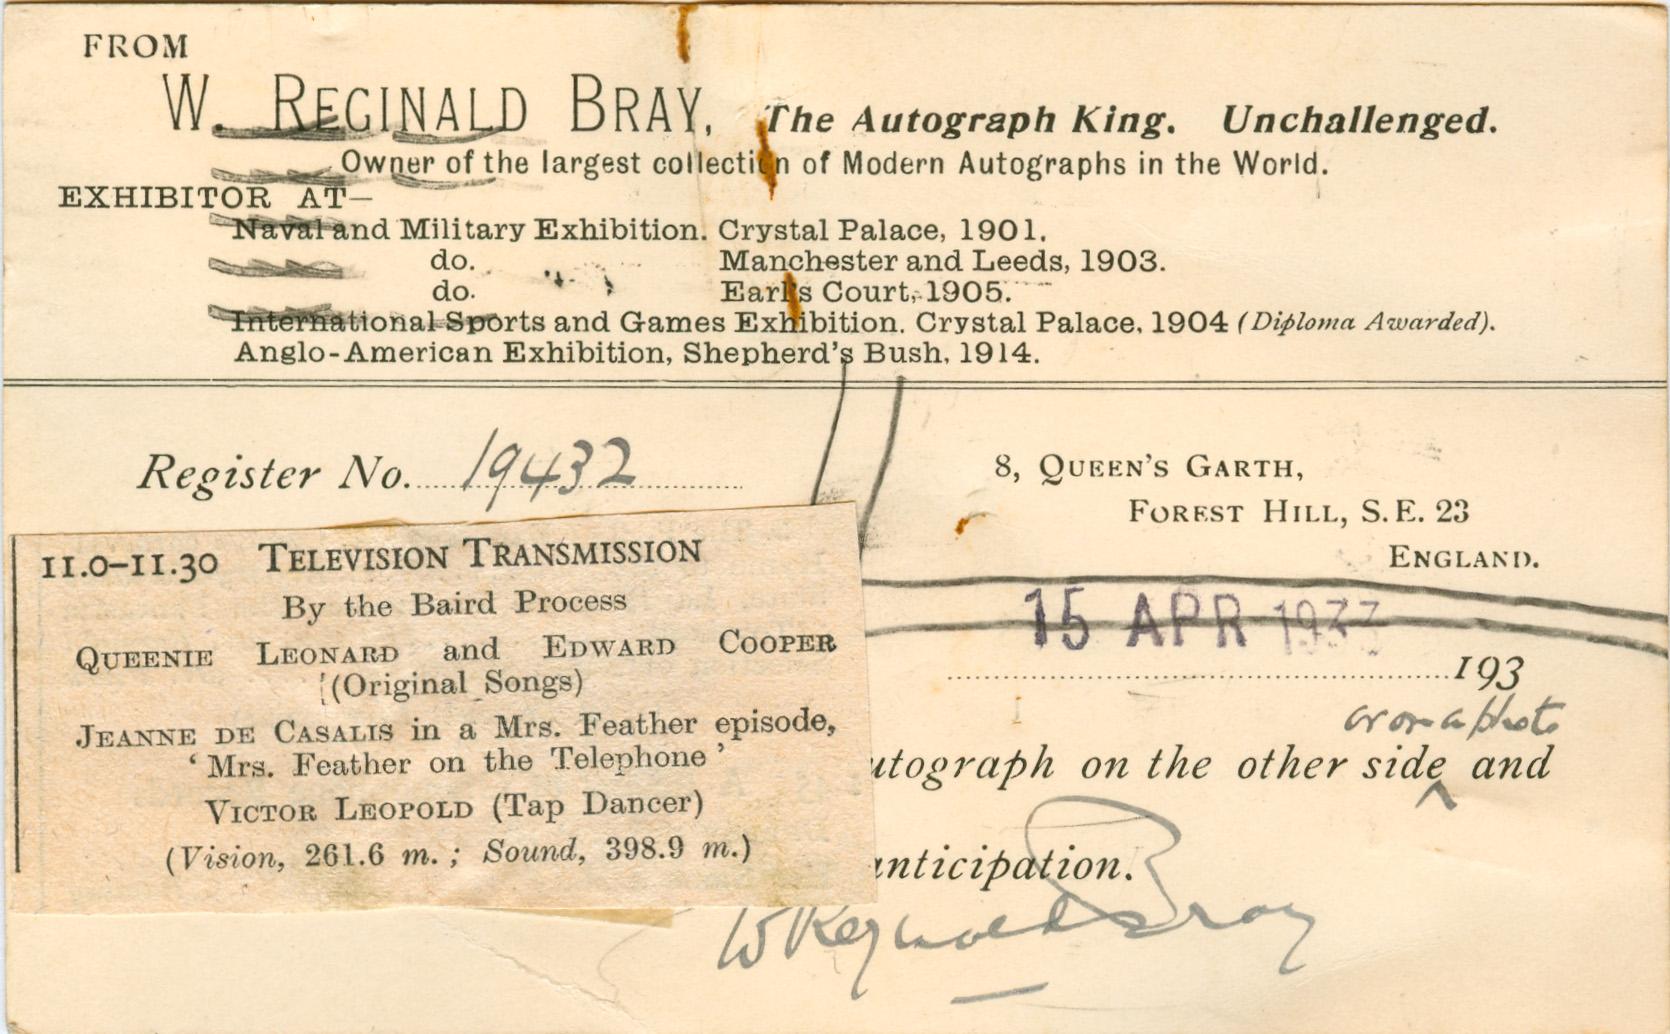 FROM
W. REGINALD BRAY, The Autograph King. Unchallenged.
Owner of the largest collection of Modern Autographs in the World.
EXHIBITOR AT—
Naval and Military Exhibition. Crystal Palace, 1901.
do. Manchester and Leeds, 1903.
do. Earl's Court, 1905.
International Sports and Games Exhibition. Crystal Palace, 1904 (Diploma Awarded).
Anglo-American Exhibition, Shepherd's Bush, 1914.
Register No. 19432
8, QUEEN'S GARTH,
FOREST HILL, S.E. 23
ENGLAND.
15 APR 1933
193
11.0–11.30 TELEVISION TRANSMISSION
By the Baird Process
QUEENIE LEONARD and EDWARD COOPER
(Original Songs)
JEANNE DE CASALIS in a Mrs. Feather episode,
‘Mrs. Feather on the Telephone’
VICTOR LEOPOLD (Tap Dancer)
(Vision, 261.6 m.; Sound, 398.9 m.)
or on a photo
utograph on the other side ^ and
anticipation.
W Reginald Bray